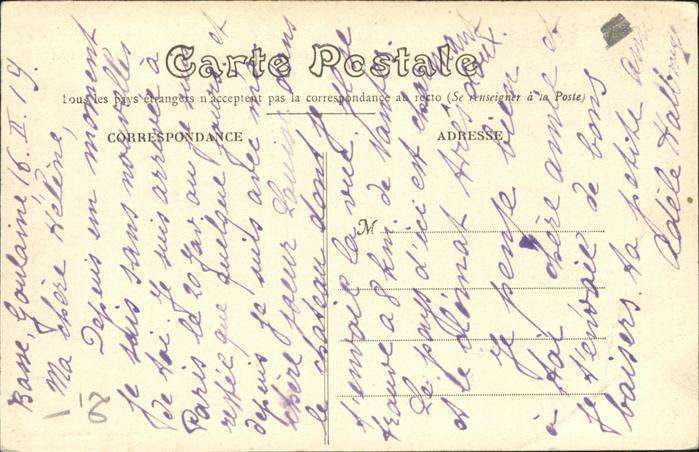 Carte Postale
Tous les pays étrangers n'acceptent pas la correspondance au recto (Se renseigner à la Poste)
CORRESPONDANCE
ADRESSE
M
Basse, Goulaine 16. II. 19.
Ma chère Hélène,
Depuis un moment
je suis sans nouvelles
de toi. Je suis arrivée à
Paris le 20 et
restée que quelque jours et
depuis je suis avec ma
chère soeur dans
le château dont je
t'envoie la vue. Je me
trouve à 8 km de Nantes
Le pays d'ici est
et le climat très doux.
Je pense bien
à toi chère amie et
je t'envoie de bons
baisers. Ta petite amie
Adèle